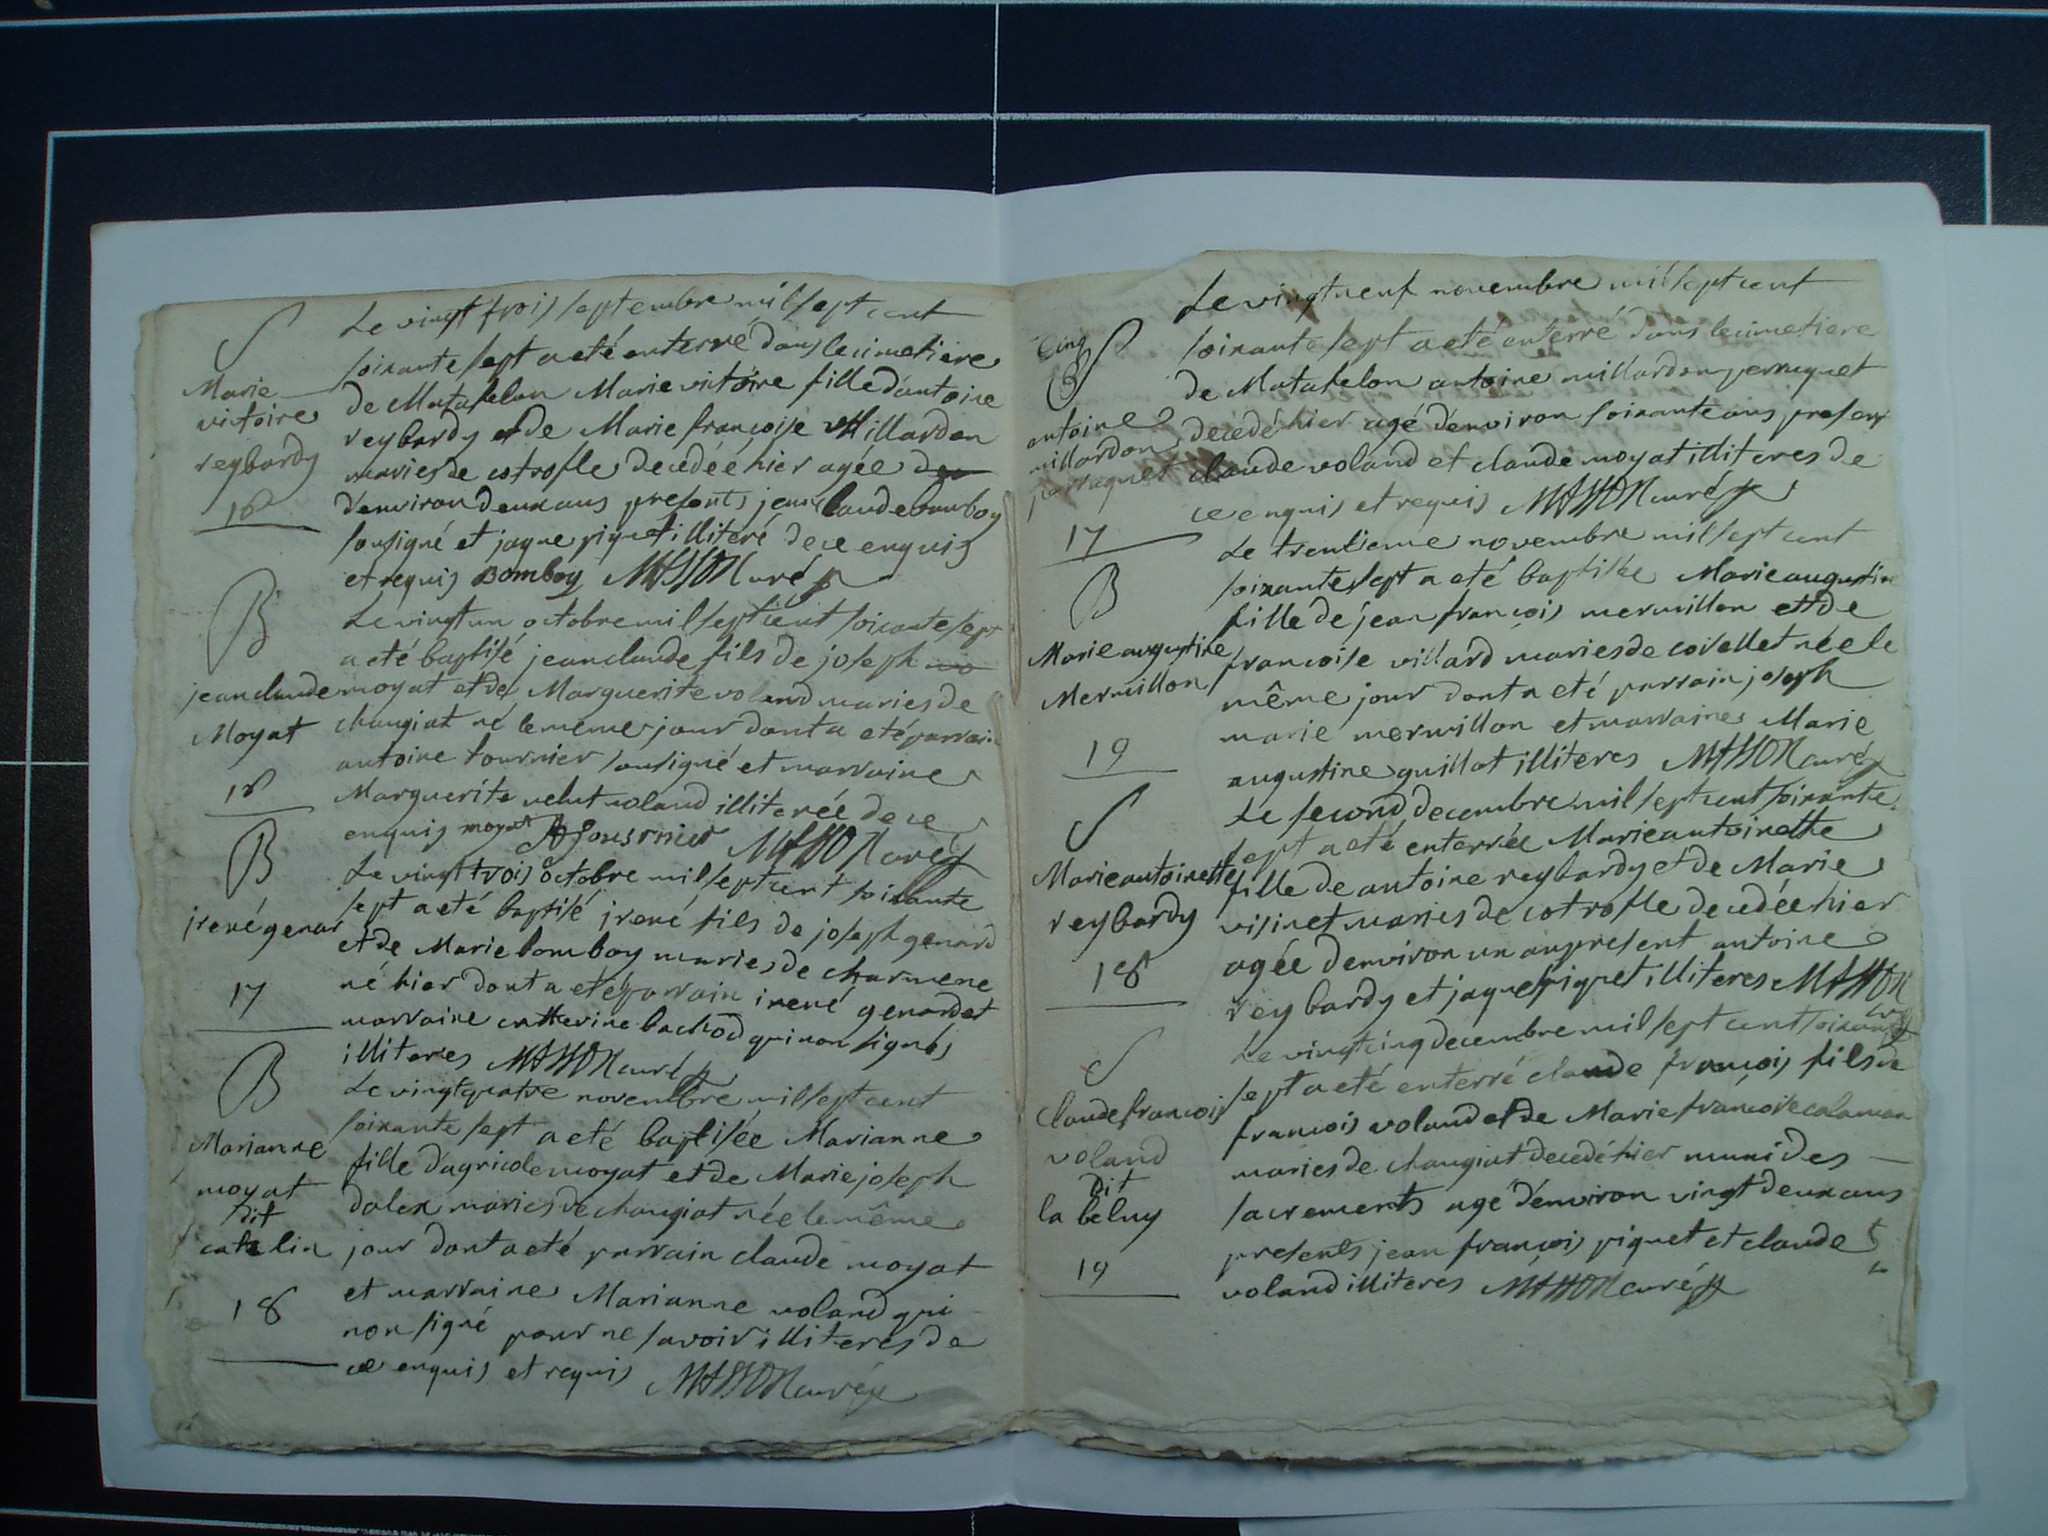 S
Marie
victoire
reybardy
18
Le vingt trois septembre mil sept cent
soixante sept a eté enterré dans le cimetiere
de Matafelon Marie victoire fille d'antoine
reybardy et de Marie françoise Millardon
mariés de cotrofle decedéé hier agée
d'environ deux ans presents jean claude bomboy
sousigné et jaque piquet illiteré de ce enquis
et requis Bomboy MASSON curé
B
jean claude
Moyat
18
Le vingt un octobre mil sept cent soixante sept
a eté baptisé jean claude fils de joseph
moyat et de Marguerite voland mariés de
changiat né le même jour dont a eté parrain
antoine tournier sousigné et marraine
Marguerite velut voland illiterée de ce
enquis moyat MASSON curé
B
jrené genar
17
Le vingt trois octobre mil sept cent soixante
sept a eté baptisé jrené fils de joseph genard
et de Marie bomboy mariés de charmene
né hier dont a eté parrain irené genard et
marraine catherine bachod qui non signés
illiteres MASSON curé
B
Marianne
moyat
dit
catelin
18
Le vingt quatre novembre mil sept cent
soixante sept a eté baptisée Marianne
fille d'agricole moyat et de Marie joseph
dalex mariés de changiat née le même
jour dont a eté parrain claude moyat
et marraine Marianne voland qui
non signé pour ne savoir illiteres de
ce enquis et requis MASSON curé
Cinq
S
antoine
millardon
17
Le vingt neuf novembre mil sept cent
soixante sept a eté enterré dans le cimetiere
de Matafelon antoine millardon perruquet
decedé hier agé d'environ soixante ans presens
claude voland et claude moyat illiteres de
ce enquis et requis MASSON curé
B
Marie augustine
Mermillon
19
Le trentieme novembre mil sept cent
soixante sept a eté baptisée Marie augustine
fille de jean françois mermillon et de
françoise villard mariés de corellet née le
même jour dont a eté parrain joseph
marie mermillon et marraine Marie
augustine guillot illiteres MASSON curé
S
Marie antoinette
reybardy
18
Le second decembre mil sept cent soixante
sept a eté enterrée Marie antoinette
fille de antoine reybardy et de Marie
visinet mariés de cotrofle decedée hier
agée d'environ un an present antoine
reybardy et jaque piquet illiteres MASSON
S
Claude françois
voland
dit
la beluy
19
Le vingt cinq decembre mil sept cent soixante
sept a eté enterré claude françois fils de
françois voland et de Marie françoise
mariés de changiat decedé hier muni des
sacrements agé d'environ vingt deux ans
presents jean françois piquet et claude
voland illiteres MASSON curé